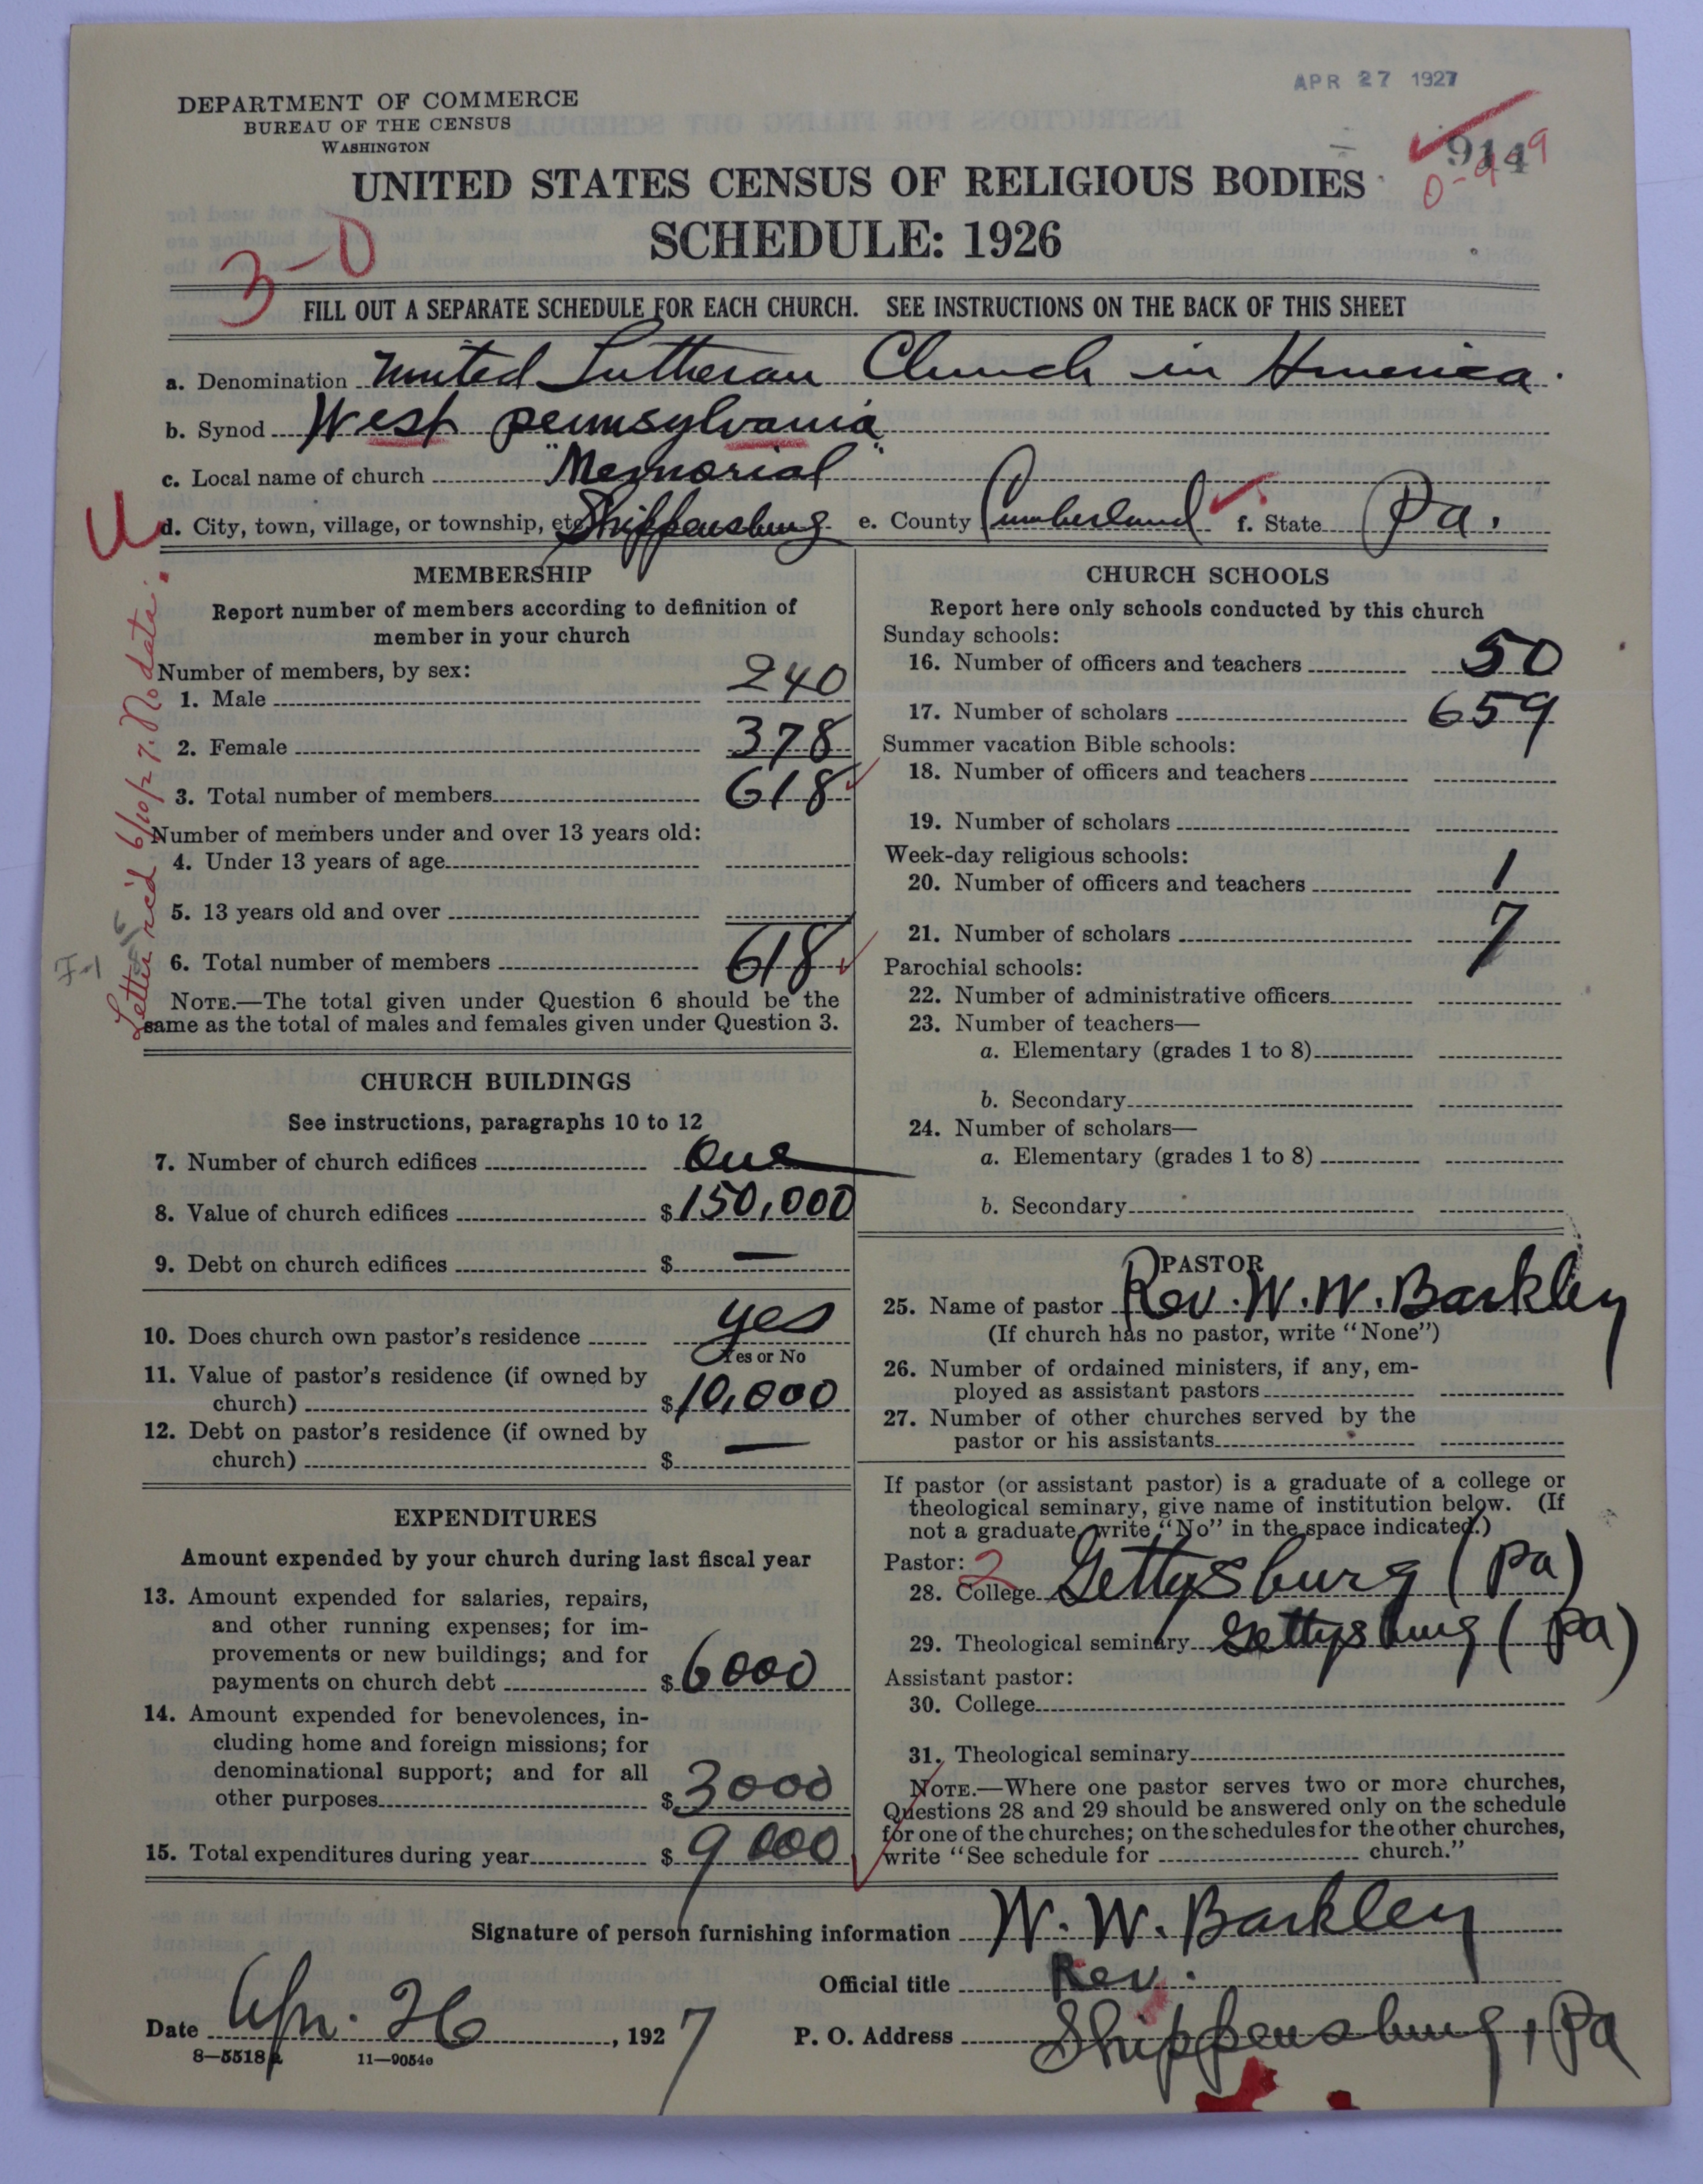 APR 27 1927
DEPARTMENT OF COMMERCE
BUREAU OF THE CENSUS
WASHINGTON
914
0-9-9
UNITED STATES CENSUS OF RELIGIOUS BODIES
SCHEDULE: 1926
3-0
FILL OUT A SEPARATE SCHEDULE FOR EACH CHURCH. SEE INSTRUCTIONS ON THE BACK OF THIS SHEET
a. Denomination United Lutheran Church in America.
b. Synod West Pennsylvania
c. Local name of church "Memorial"
d. City, town, village, or township, etc. Shippensburg e. County Cumberland f. State Pa.
U
Letter rec'd 6/10/27. No data.
F-1
MEMBERSHIP
Report number of members according to definition of
member in your church
Number of members, by sex:
1. Male 240
2. Female 378
3. Total number of members 618
Number of members under and over 13 years old:
4. Under 13 years of age
5. 13 years old and over
6. Total number of members 618
NOTE.—The total given under Question 6 should be the
same as the total of males and females given under Question 3.
CHURCH BUILDINGS
See instructions, paragraphs 10 to 12
7. Number of church edifices One
8. Value of church edifices $150,000
9. Debt on church edifices $ —
10. Does church own pastor's residence yes
Yes or No
11. Value of pastor's residence (if owned by
church) $10,000
12. Debt on pastor's residence (if owned by
church) $ —
EXPENDITURES
Amount expended by your church during last fiscal year
13. Amount expended for salaries, repairs,
and other running expenses; for im-
provements or new buildings; and for
payments on church debt $6000
14. Amount expended for benevolences, in-
cluding home and foreign missions; for
denominational support; and for all
other purposes $3000
15. Total expenditures during year $9000
CHURCH SCHOOLS
Report here only schools conducted by this church
Sunday schools:
16. Number of officers and teachers 50
17. Number of scholars 659
Summer vacation Bible schools:
18. Number of officers and teachers
19. Number of scholars
Week-day religious schools:
20. Number of officers and teachers 1
21. Number of scholars 7
Parochial schools:
22. Number of administrative officers
23. Number of teachers—
a. Elementary (grades 1 to 8)
b. Secondary
24. Number of scholars—
a. Elementary (grades 1 to 8)
b. Secondary
PASTOR
25. Name of pastor Rev. W. W. Barkley
(If church has no pastor, write "None")
26. Number of ordained ministers, if any, em-
ployed as assistant pastors
27. Number of other churches served by the
pastor or his assistants
If pastor (or assistant pastor) is a graduate of a college or
theological seminary, give name of institution below. (If
not a graduate, write "No" in the space indicated.)
Pastor: 2
28. College Gettysburg (Pa)
29. Theological seminary Gettysburg (Pa)
Assistant pastor:
30. College
31. Theological seminary
NOTE.—Where one pastor serves two or more churches,
Questions 28 and 29 should be answered only on the schedule
for one of the churches; on the schedules for the other churches,
write "See schedule for church."
Signature of person furnishing information W. W. Barkley
Official title Rev.
Date Apr. 26, 1927 P. O. Address Shippensburg, Pa
8—5518a 11—9054c